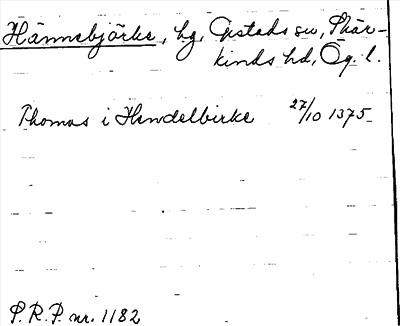 Hännebjörke, hg, Gistads sn, Skär-
kinds hd, Ög. l.
Thomas i Hendelbirke 27/10 1375
S.R.P. nr. 1182